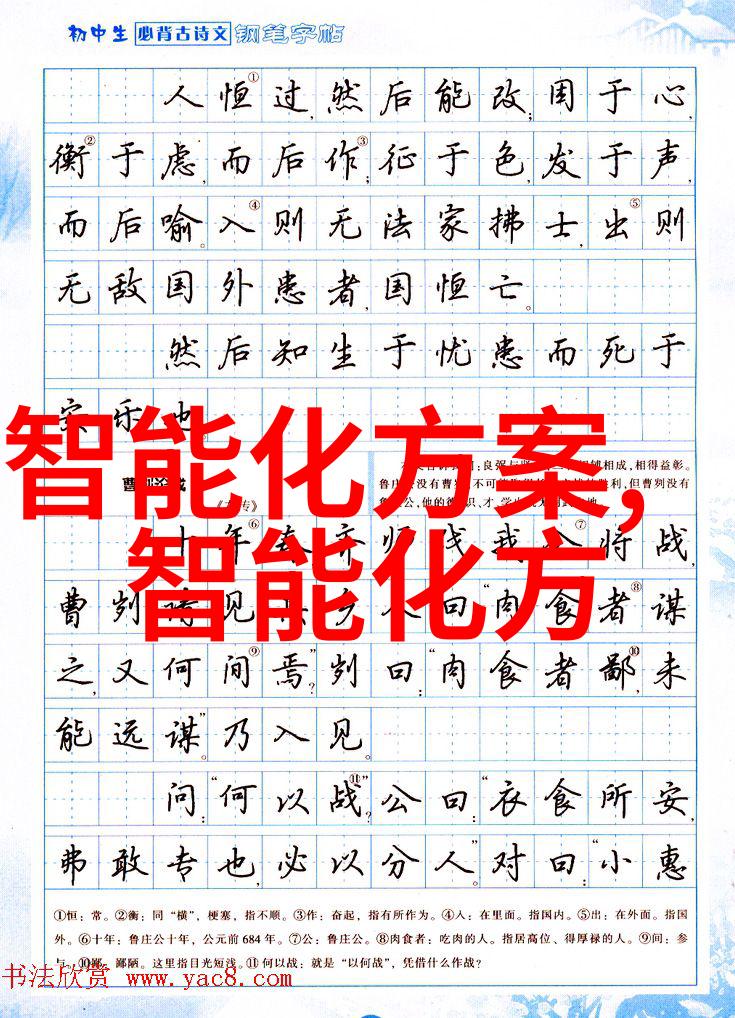 初中生 必背古诗文 钢笔字帖
人恒①过,然后能改;困于心,
衡②于虑,而后作③;征于色,发于声,
而后喻。入④则无法家拂士,出⑤则
无敌国外患者,国恒亡。
然后知生于忧患而死于
安乐也。
智能化方案,
智能化方
相辅相成,相得益彰。
鲁庄公没有曹刿,不可能 胜利,但曹刿没有
鲁庄公,他的 识、才、学
曹刿论战
《左传》
十年⑥春,齐师伐我,公⑦将战,
曹刿请见。其乡人曰:“肉食者⑧谋
之,又何间⑨焉?”刿曰:“肉食者鄙⑩,未
能远谋。”乃入见。
问:“何以战⑪?”公曰:“衣食所安,
弗敢专也,必以分人。”对曰:“小惠
①恒:常。②衡:同“横”,梗塞,指不顺。③作:奋起,指有所作为。④入:在里面。指国内。⑤出:在外面。指国
外。⑥十年:鲁庄公十年,公元前684年。⑦公:鲁庄公。⑧肉食者:吃肉的人。指居高位、得厚禄的人。⑨间:参
与。⑩鄙:鄙陋。这里指目光短浅。⑪何以战:就是“以何战”,凭借什么作战?
书法欣赏 www.yac8.com